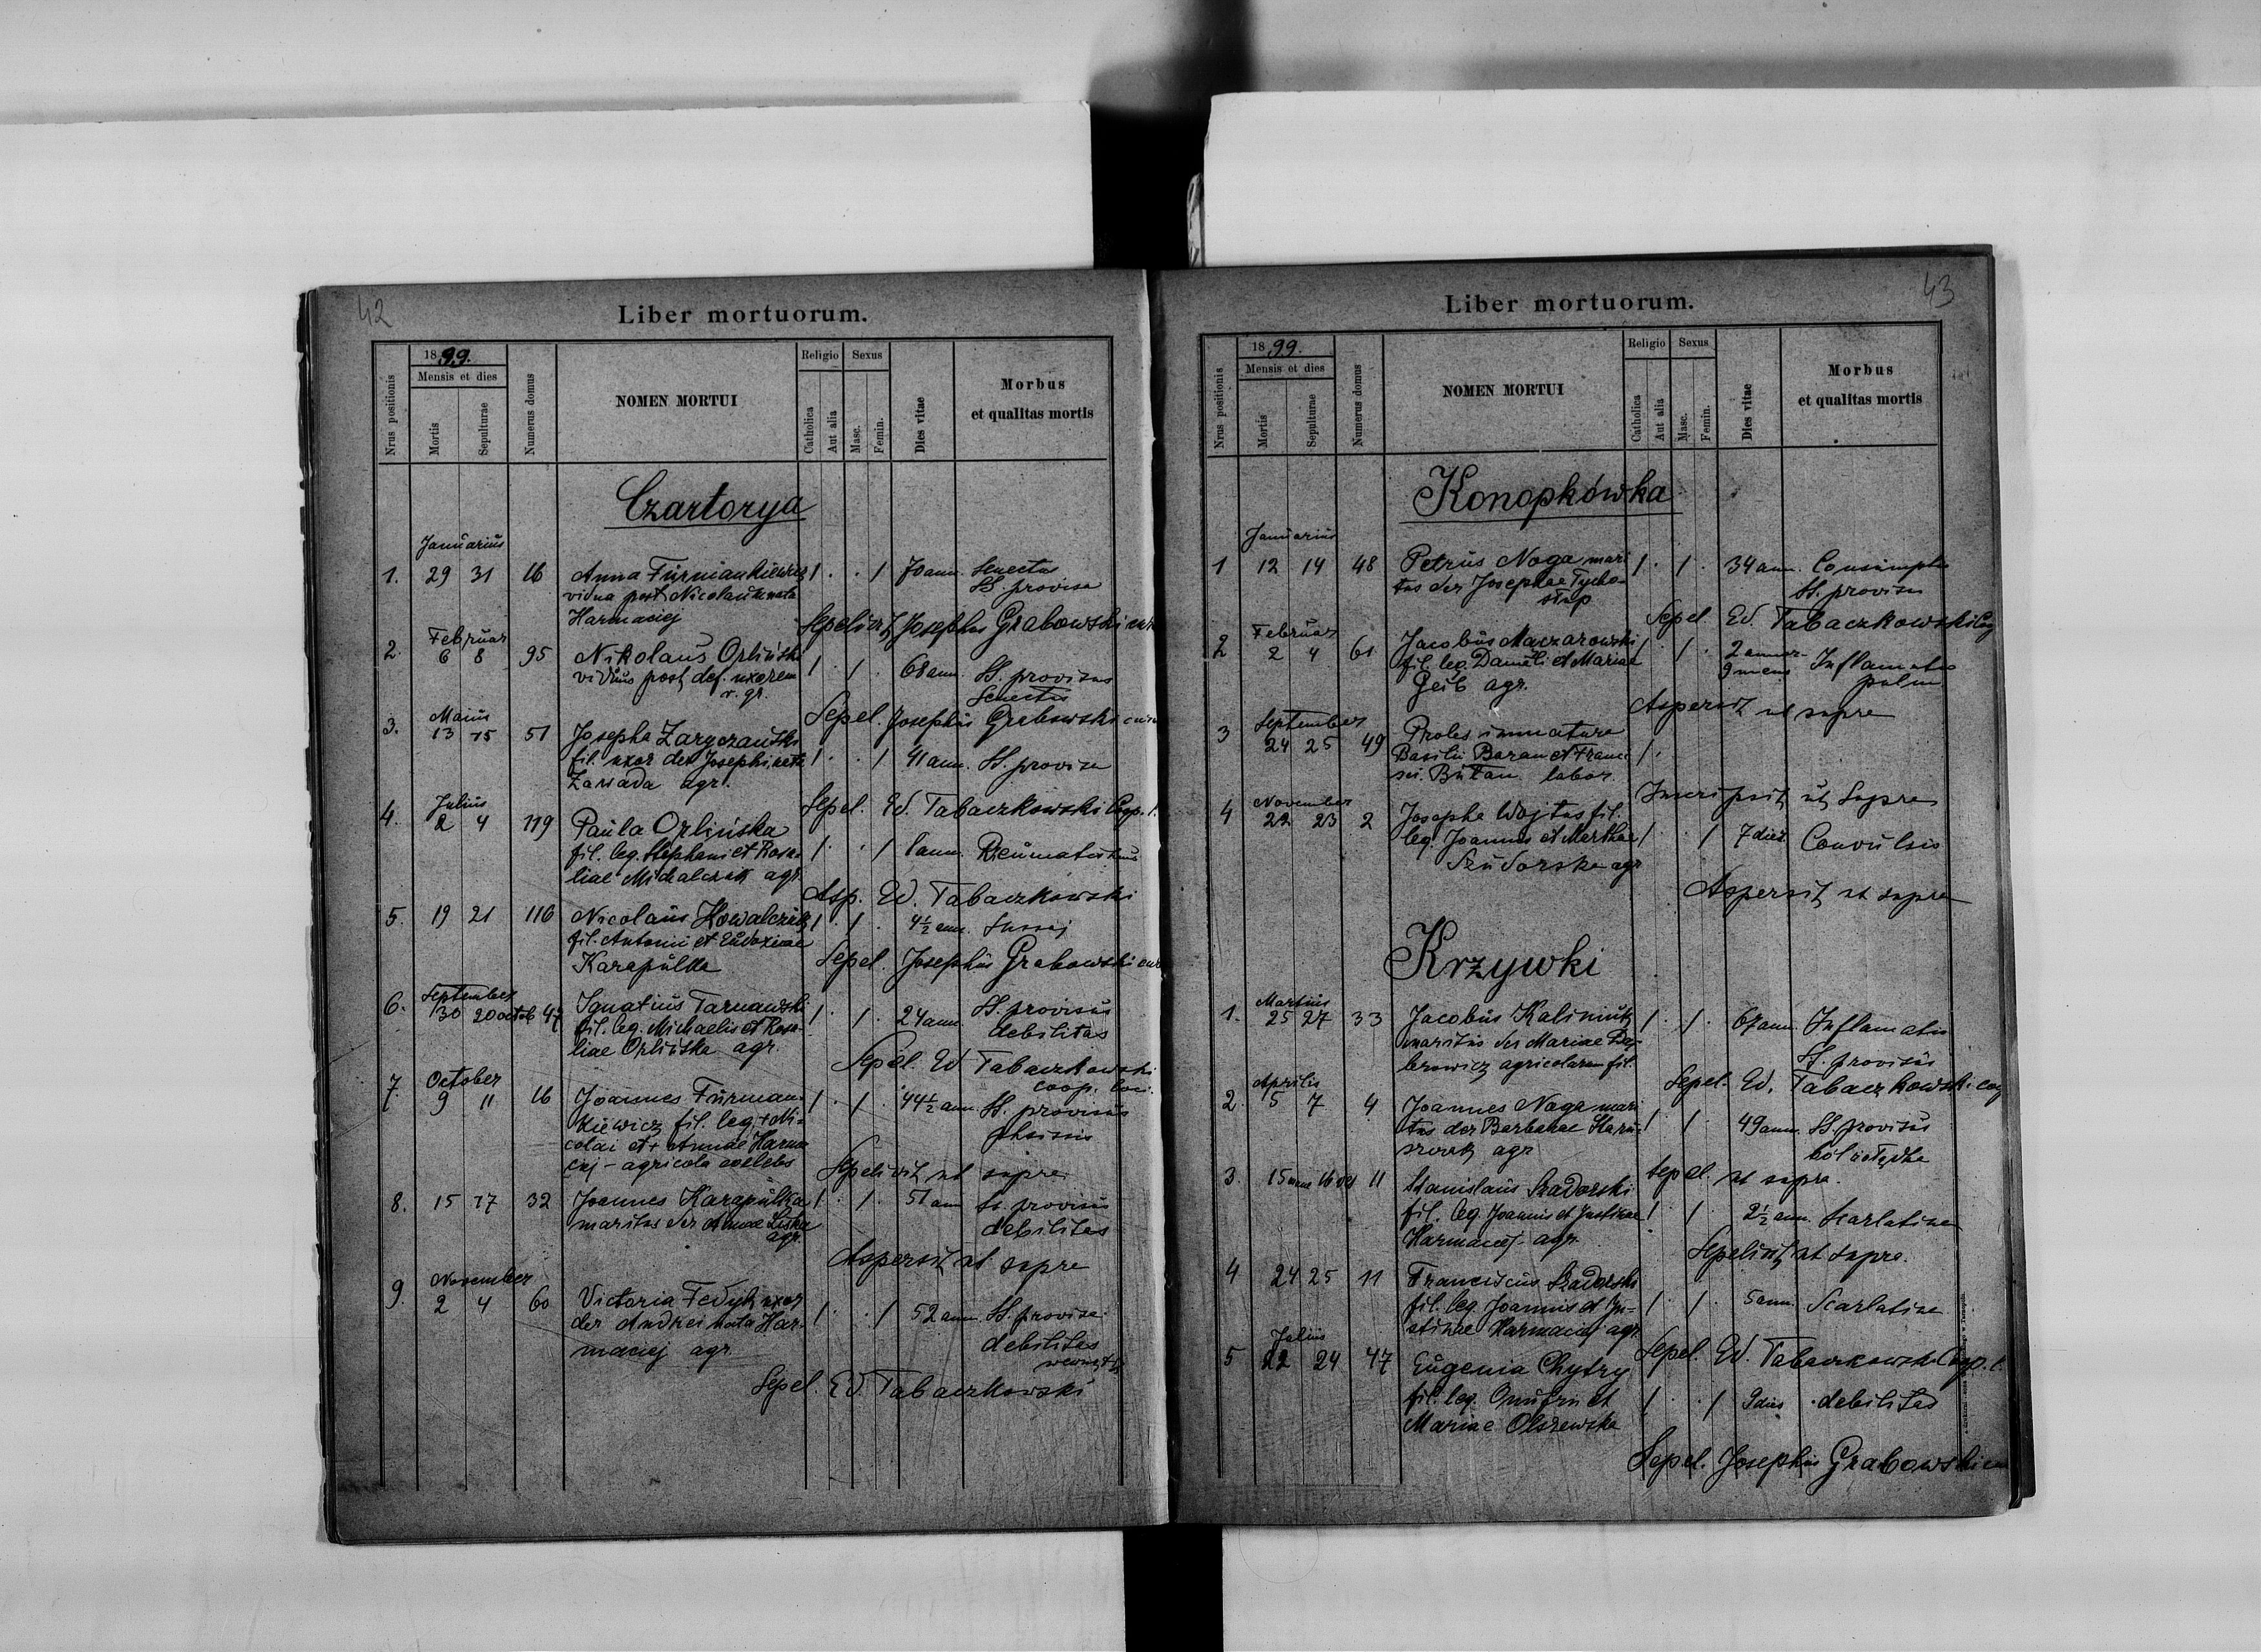 42
Liber mortuorum.
1899.
Mensis et dies
Nrus positionis
Mortis
Sepulturae
Numerus domus
NOMEN MORTUI
Religio
Sexus
Catholica
Aut alia
Masc.
Femin.
Dies vitae
Morbus
et qualitas mortis
Czartorya
Januarius
1. 29 31 16 Anna Furmankiewicz 1 . . 1 70 ann. Senectus
vidua post Nicolaum nata SS provisa
Harmaciej Sepelivit Josephus Grabowski
Februar
2. 6 8 95 Nikolaus Orliński 1 . 1 . 68 ann. SS. provisus
viduus post def. uxorem Senectus
r. gr. Sepel. Josephus Grabowski
Maius
3. 13 15 51 Josepha
fil. uxor der Josephi nata 1 . . 1 41 ann. SS. provisa
agr. Sepel. Ed. Tabaczkowski Coop. l.
Julius
4. 2 4 119 Paula Orlińska
fil. leg. Stephani et Rosa- 1 . . 1 ann. Reumatismus
liae Michalczuk agr. Asp. Ed. Tabaczkowski
5. 19 21 116 Nicolaus Kowalczuk 1 . 1 . 4½ ann.
fil. Antonii et Eudoxiae
Karapulka Sepel. Josephus Grabowski
September
6. 30 20 octob 47 Ignatius Tarnawski 1 . 1 . 24 ann. SS. provisus
fil. leg. Michaelis et Rosa- debilitas
liae Orlińska agr. Sepel. Ed Tabaczkowski
coop. loci.
October
7. 9 11 16 Joannes Furman- 1 . 1 . 44½ ann. SS. provisus
kiewicz fil. leg. + Ni- phtisis
colai et + Annae Harma
ciej - agricola coelebs Sepelivit ut supra
8. 15 17 32 Joannes Karapulka 1 . 1 . 51 ann SS. provisus
maritus der Annae Liska debilitas
agr. Aspersit ut supra
November
9. 2 4 60 Victoria Fedyk uxor 1 . . 1 52 ann. SS. provisa
der Andrei nata Har- debilitas
maciej agr.
Sepel. Ed. Tabaczkowski
43
Liber mortuorum.
1899.
Mensis et dies
Nrus positionis
Mortis
Sepulturae
Numerus domus
NOMEN MORTUI
Religio
Sexus
Catholica
Aut alia
Masc.
Femin.
Dies vitae
Morbus
et qualitas mortis
Konopkówka
Januarius
1 12 14 48 Petrus Noga mari 1 . 1 . 34 ann.
tus der Josephae Tycho- SS. provisus
stup Sepel. Ed. Tabaczkowski
Februar
2 2 4 61 Jacobus Naczarowski 1 . 1 . 2 annor.
fil. leg. Danieli et Mariae 9 mens Inflamatio
Geib agr. pulm
Aspersit ut supra
September
3 24 25 49 Proles immatura
Basilii Baran et Franci- 1 .
sci. labor. Inscripsit ut supra
November
4 22 23 2 Josepha Wojtas fil.
leg. Joannis et Marthae 1 . . 1 7 dies Convulsio
Szudorska agr
Aspersit ut supra
Krzywki
Martius
1. 25 27 33 Jacobus Kaliniuk 1 . 1 . 67 ann. Inflamatio
maritus der Mariae SS. provisus
browicz agricolarum fil.
Sepel. Ed. Tabaczkowski
Aprilis
2. 5 7 4 Joannes Noga mari
tus der Barbarae 1 . 1 49 ann. SS. provisus
agr
Sepel. ut supra.
3. 15 16 11 Stanislaus Szadorski
fil. leg. Joannis et Justinae 1 . 1 . 2½ ann. Scarlatina
Harmaciej agr Sepelivit ut supra.
4 24 25 11 Franciscus Szadorski
fil. leg. Joannis et Ju- 1 . 1 . 5 ann. Scarlatina
stinae Harmaciej agr.
Sepel. Ed. Tabaczkowski Coop. l.
Julius
5 22 24 47 Eugenia Chytry
fil. leg. Onufrii et 1 . . 1 9 dies debilitas
Mariae Olszewska
Sepel. Josephus Grabowski